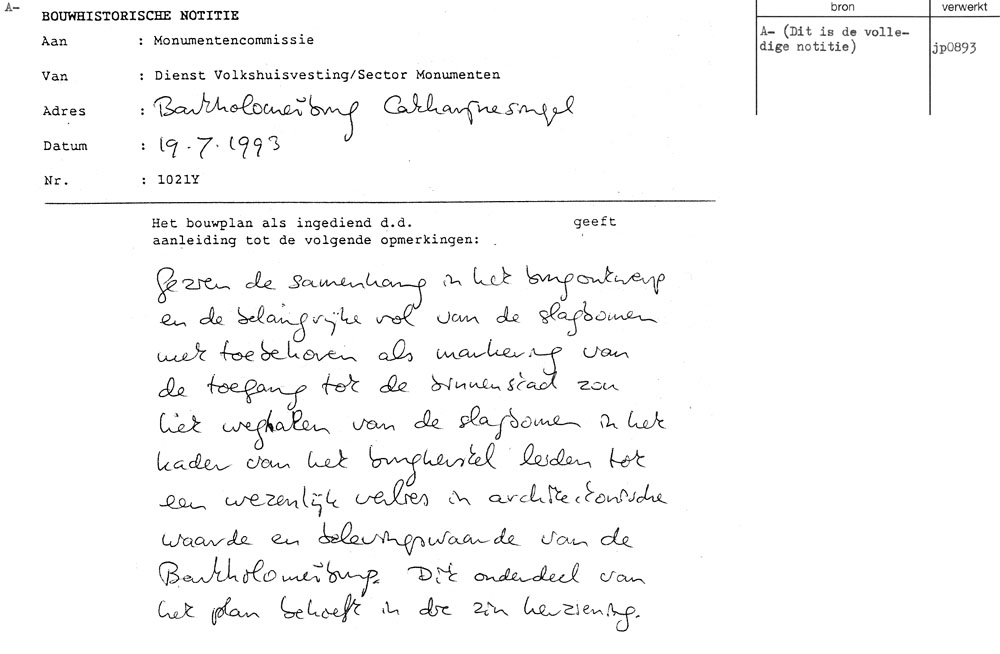 A-
BOUWHISTORISCHE NOTITIE
Aan : Monumentencommissie
Van : Dienst Volkshuisvesting/Sector Monumenten
Adres : Bartholomeïbrug Catharijnesingel
Datum : 19.7.1993
Nr. : 1021Y
bron verwerkt
A- (Dit is de volle-
dige notitie) jp0893
Het bouwplan als ingediend d.d. geeft
aanleiding tot de volgende opmerkingen:
Gezien de samenhang in het brugontwerp
en de belangrijke rol van de slagbomen
met toebehoren als markering van
de toegang tot de binnenstad zou
het weghalen van de slagbomen in het
kader van het brugherstel leiden tot
een wezenlijk verlies in architectonische
waarde en belevingswaarde van de
Bartholomeïbrug. Dit onderdeel van
het plan behoeft in die zin herziening.